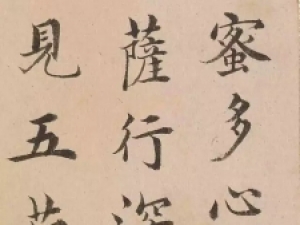 蜜多心
薩行深
見五